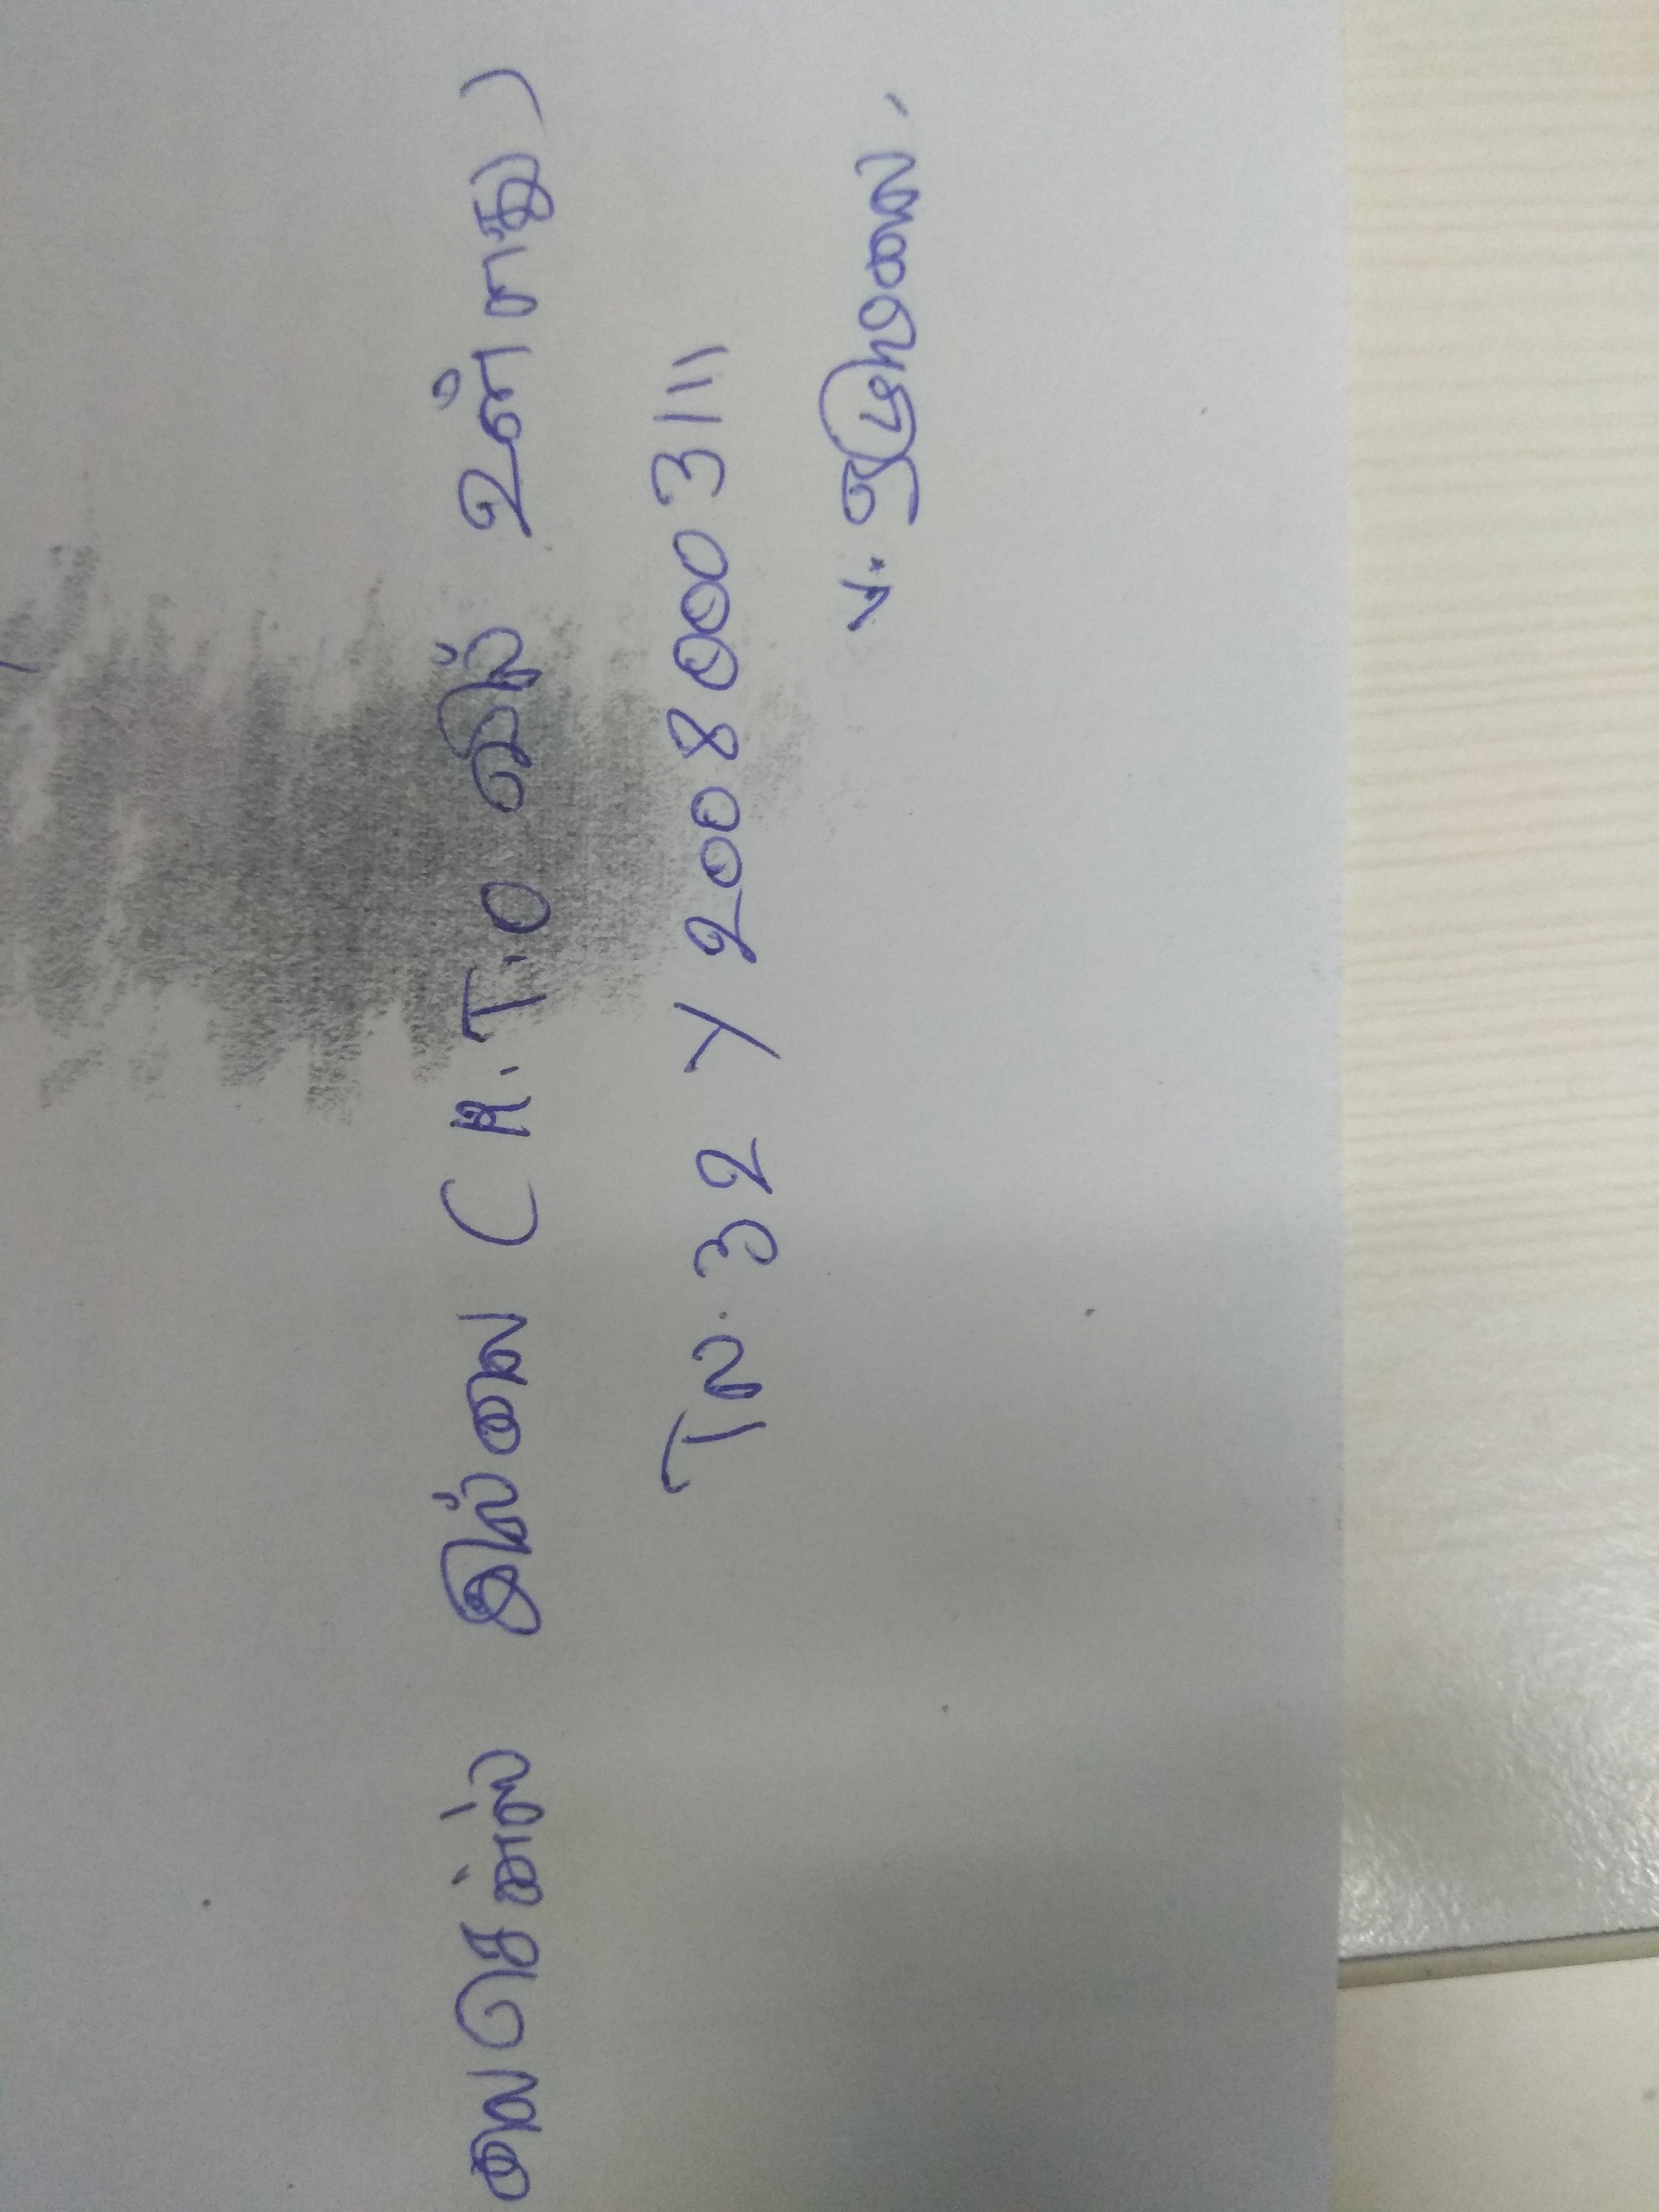 லைசென்ஸ் இல்லை (R.T.O வில் உள்ளது)
TN. 32 Y 20080003111
ப. ஏழுமலை,